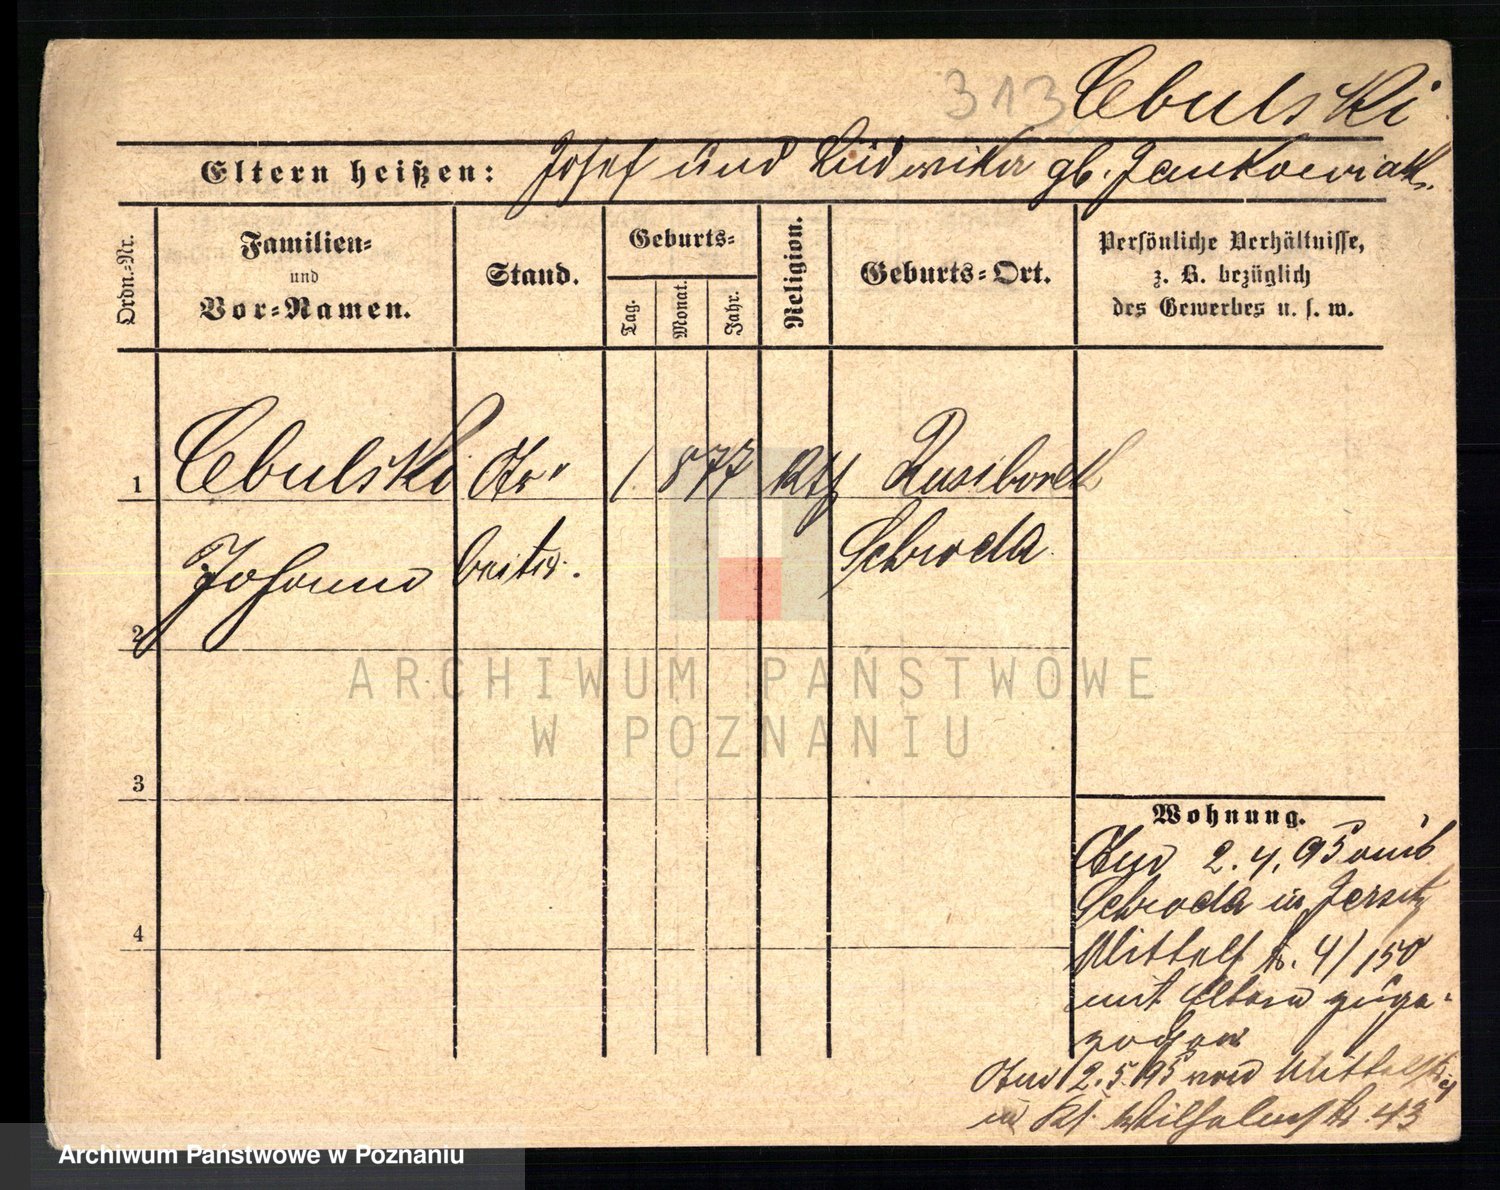 313 Cebulski
Eltern heißen: Josef und Ludwika gb. Jankowiak.
Ordn.-Nr.
Familien-
und
Vor-Namen.
Stand.
Geburts-
Tag.
Monat.
Jahr.
Religion.
Geburts-Ort.
Persönliche Verhältnisse,
z. B. bezüglich
des Gewerbes u. s. w.
1 Cebulski Ar- 1 8 77 kth Russiborek
Schroda
Johann beiter.
2
3
4
Wohnung.
Am 2.4.95 aus
Schroda in Jersitz
Mittelstr. 4/150
mit Eltern zuge-
zogen
Am 2.5.95 von Mittelstr. 4
in Kl. Wilhelmstr. 43
ARCHIWUM PAŃSTWOWE
W POZNANIU
Archiwum Państwowe w Poznaniu